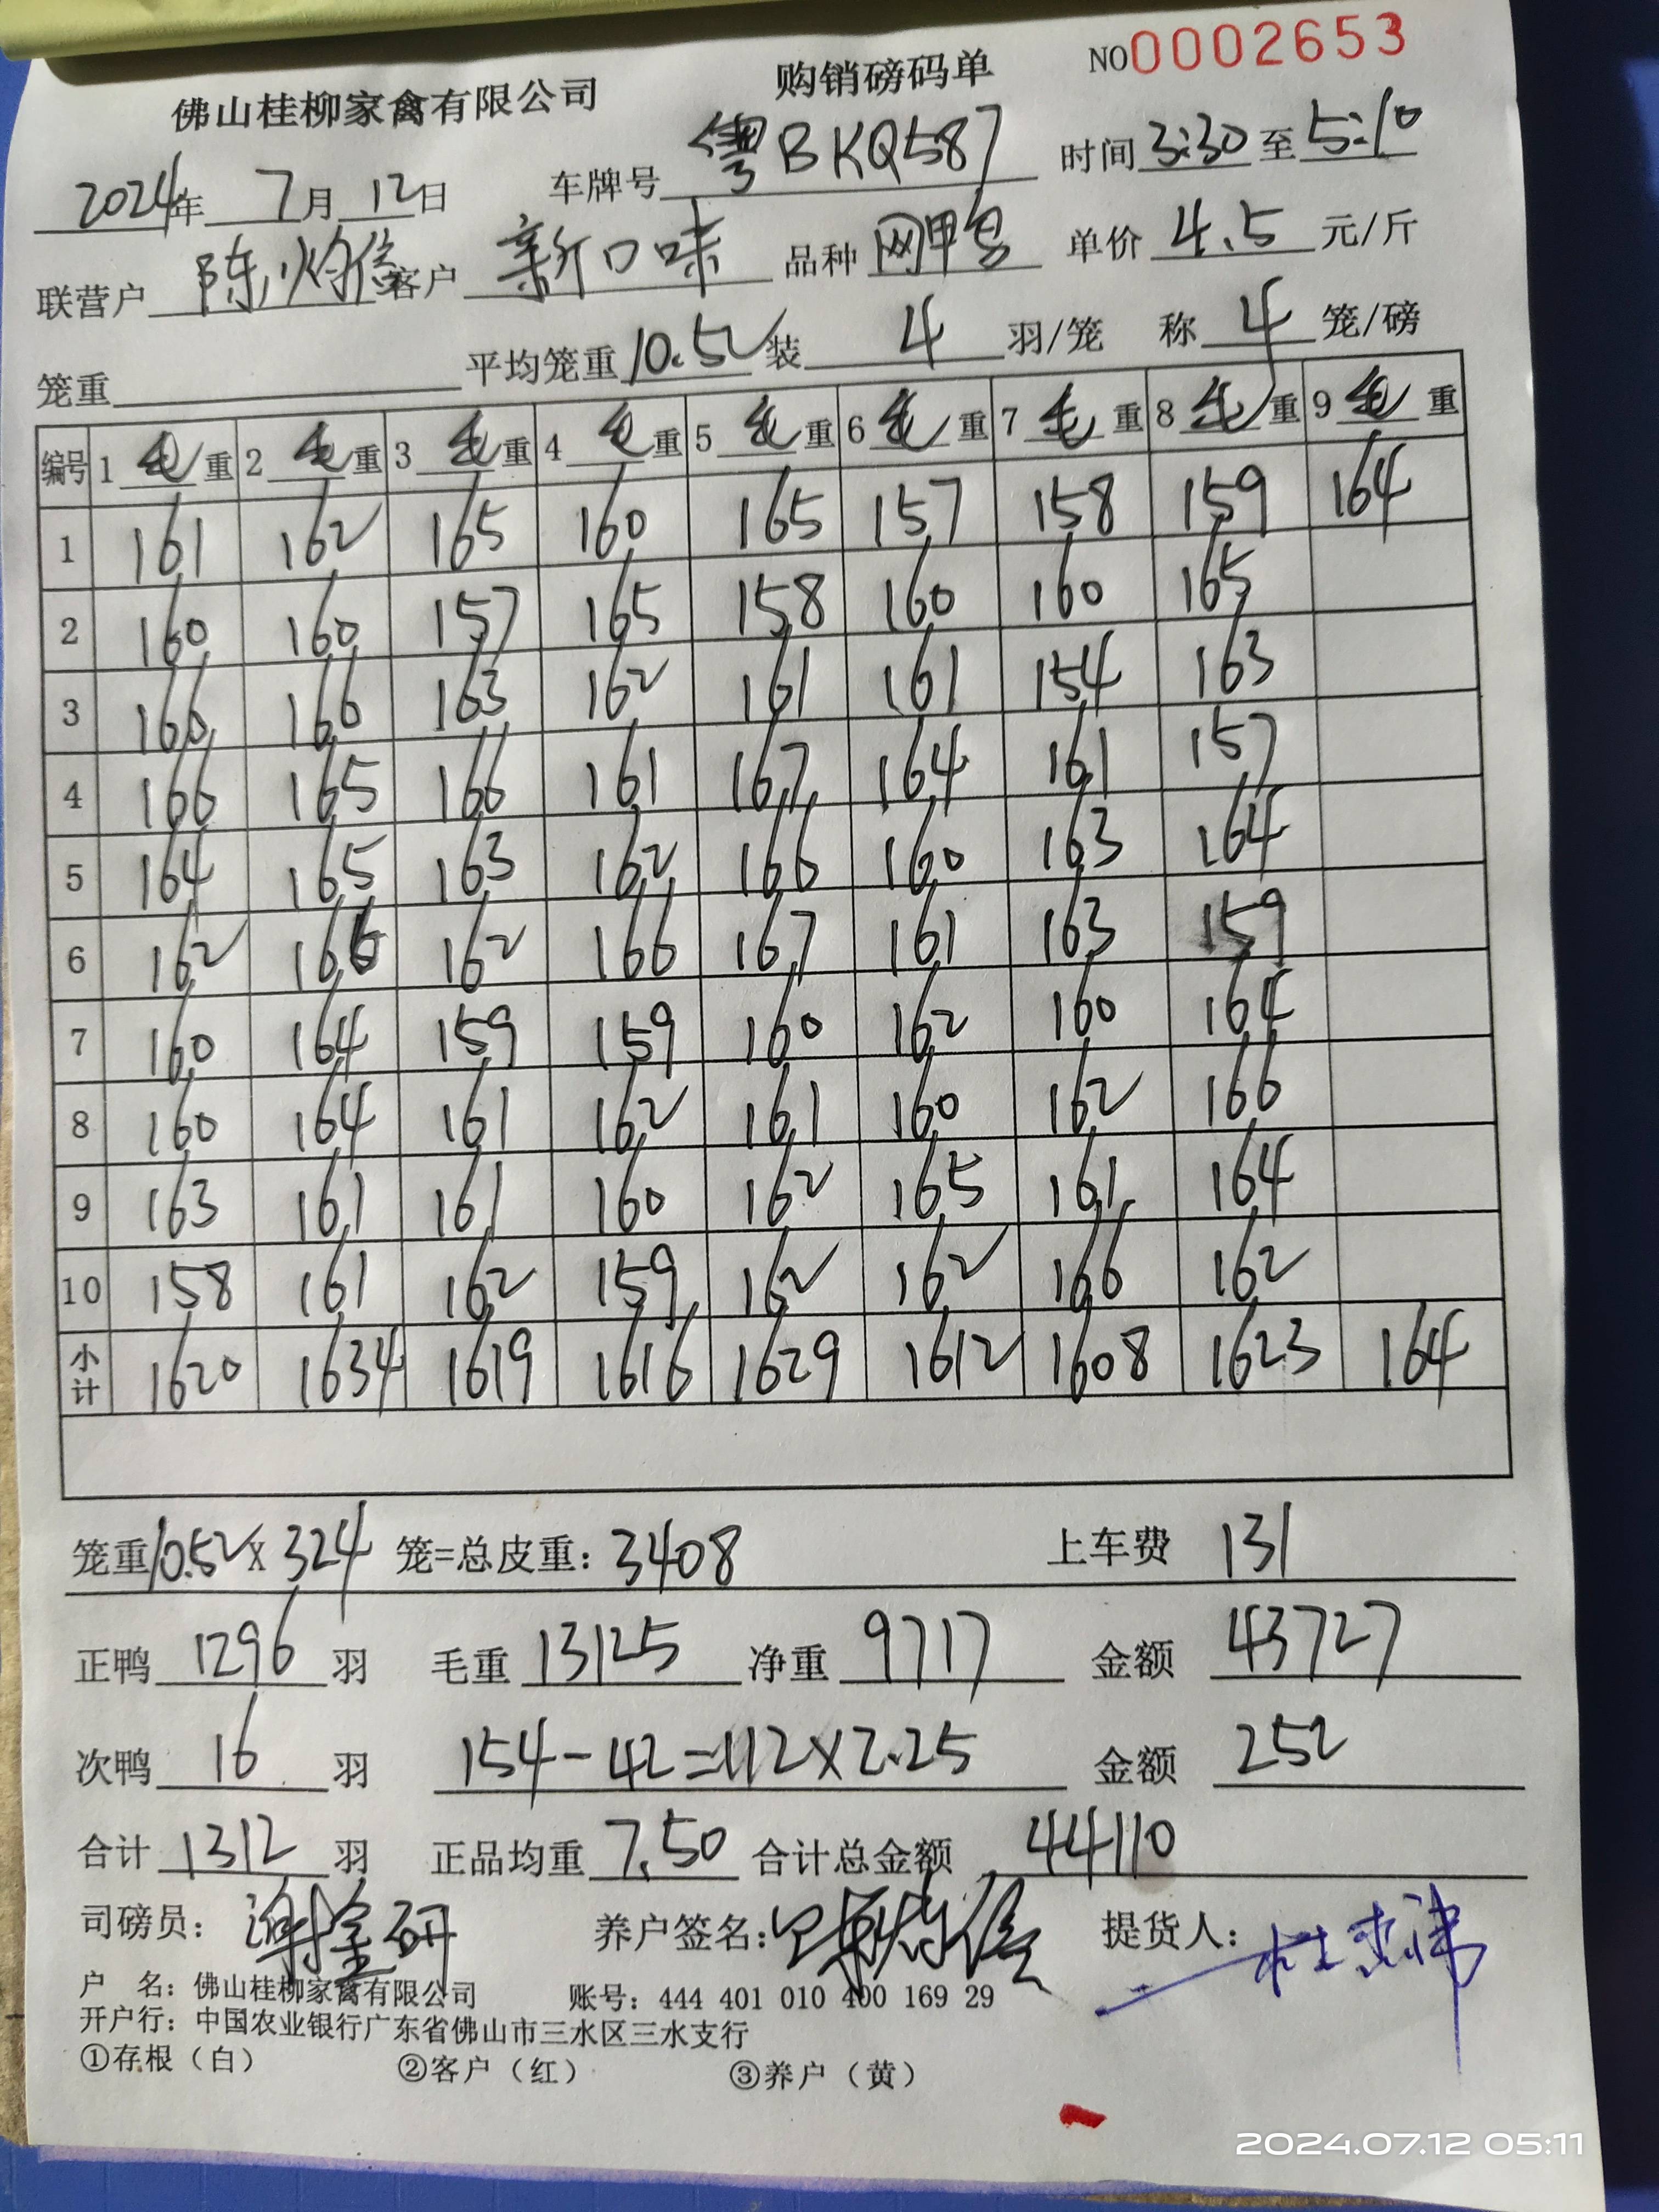 佛山桂柳家禽有限公司 购销磅码单 NO0002653
2024年 7月 12日 车牌号 粤BKQ587 时间 3:30 至 5:10
联营户 陈灼信 客户 新口味 品种 网鸭 单价 4.5 元/斤
笼重 平均笼重 10.52 装 4 羽/笼 称 4 笼/磅
编号 1 毛 重 2 毛 重 3 毛 重 4 毛 重 5 毛 重 6 毛 重 7 毛 重 8 毛 重 9 毛 重
1 161 162 165 160 165 157 158 159 164
2 160 160 157 165 158 160 160 165
3 166 166 163 162 161 161 154 163
4 166 165 166 161 167 164 161 157
5 164 165 163 162 166 160 163 164
6 162 166 162 166 167 161 163 159
7 160 164 159 159 160 162 160 164
8 160 164 161 162 161 160 162 166
9 163 161 161 160 162 165 161 164
10 158 161 162 159 162 162 166 162
小计 1620 1634 1619 1616 1629 1612 1608 1623 164
笼重 10.52 X 324 笼=总皮重: 3408 上车费 131
正鸭 1296 羽 毛重 13125 净重 9717 金额 43727
次鸭 16 羽 154-42=112×2.25 金额 252
合计 1312 羽 正品均重 7.50 合计总金额 44110
司磅员: 谢金研 养户签名: 提货人:
户 名: 佛山桂柳家禽有限公司 账号: 444 401 010 400 169 29
开户行: 中国农业银行广东省佛山市三水区三水支行
①存根(白) ②客户(红) ③养户(黄)
2024.07.12 05:11